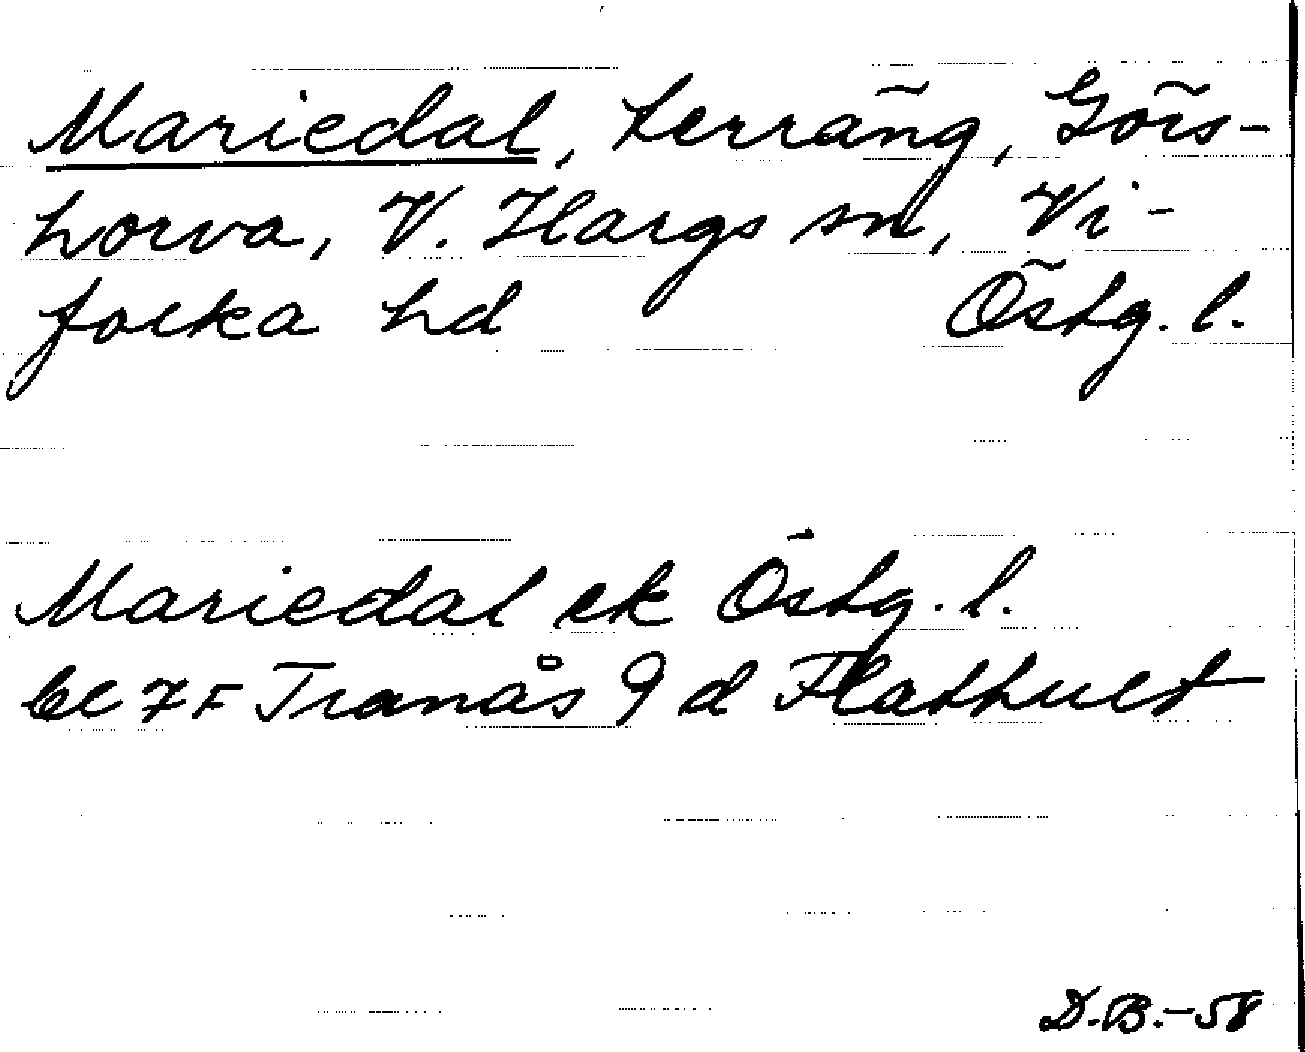 Mariedal, terräng, Görs-
torva, V. Hargs sn, Vi-
folka hd Östg. l.
Mariedal ek Östg. l.
bl 7F Tranås 9 d Flathult
D.B.-58